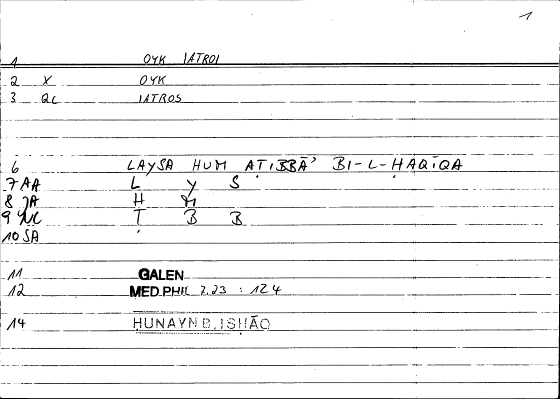 1
1 OYK IATROI
2 X OYK
3 QC IATROS
6 LAYSA HUM AṬIBBĀʾ BI-L-ḤAQĪQA
7 AA L Y S
8 JA H M
9 NC Ṭ B B
10 SA
11 GALEN
12 MED.PHIL 2.23 : 124
14 HUNAYN B. ISḤĀQ